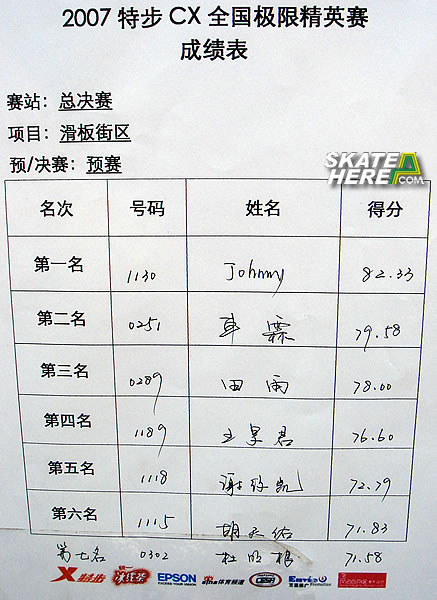 2007 特步 CX 全国极限精英赛
成绩表
赛站：总决赛
项目：滑板街区
预/决赛：预赛
SKATE
HERE .COM
名次 号码 姓名 得分
第一名 1130 Johnny 82.33
第二名 0251 车霖 79.58
第三名 0289 田雨 78.00
第四名 1189 76.60
第五名 1118 72.79
第六名 1115 胡天佑 71.83
第七名 0302 杜明根 71.58
X 特步 EPSON